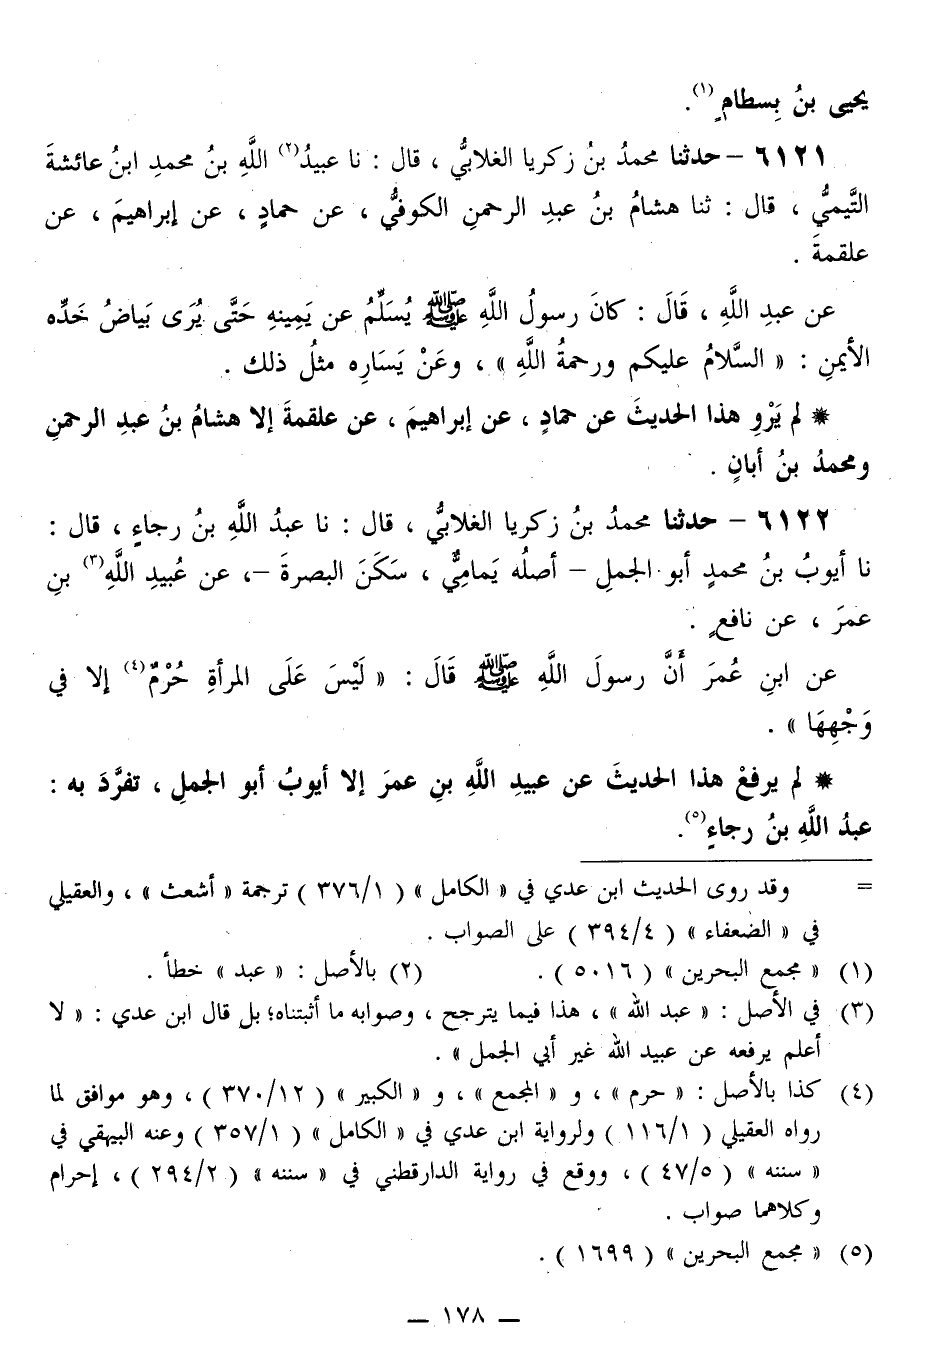 يحيى بنُ بِسطامٍ(١).
٦١٢١ – حدثنا محمدُ بنُ زكريا الغلابيُّ ، قال : نا عبيدُ(٢) اللَّهِ بنُ محمدِ ابنُ عائشةَ
التَّيميُّ ، قال : ثنا هشامُ بنُ عبدِ الرحمنِ الكوفيُّ ، عن حمادٍ ، عن إبراهيمَ ، عن
علقمةَ .
عن عبدِ اللَّهِ ، قَالَ : كانَ رسولُ اللَّهِ ﷺ يُسَلِّمُ عن يَمِينِهِ حَتَّى يُرَى بَياضُ خَدِّه
الأيمنِ : « السَّلامُ عليكم ورحمةُ اللَّهِ » ، وعَنْ يَسَارِه مثلُ ذلك .
* لم يَرْوِ هذا الحديثَ عن حمادٍ ، عن إبراهيمَ ، عن علقمةَ إلا هشامُ بنُ عبدِ الرحمنِ
ومحمدُ بنُ أبانٍ .
٦١٢٢ – حدثنا محمدُ بنُ زكريا الغلابيُّ ، قال : نا عبدُ اللَّهِ بنُ رجاءٍ ، قال :
نا أيوبُ بنُ محمدٍ أبو الجملِ – أصلُه يَمامِيٌّ ، سَكَنَ البصرةَ –، عن عُبيدِ اللَّهِ(٣) بنِ
عمرَ ، عن نافعٍ .
عن ابنِ عُمرَ أَنَّ رسولَ اللَّهِ ﷺ قَالَ : « لَيْسَ عَلَى المرأةِ حُرْمٌ(٤) إلا في
وَجْهِهَا » .
* لم يرفعْ هذا الحديثَ عن عبيدِ اللَّهِ بنِ عمرَ إلا أيوبُ أبو الجملِ ، تفرَّدَ به :
عبدُ اللَّهِ بنُ رجاءٍ(٥).
= وقد روى الحديث ابن عدي في « الكامل » ( ٣٧٦/١ ) ترجمة « أشعث » ، والعقيلي
في « الضعفاء » ( ٣٩٤/٤ ) على الصواب .
(١) « مجمع البحرين » ( ٥٠١٦ ) . (٢) بالأصل : « عبد » خطأ .
(٣) في الأصل : « عبد الله » ، هذا فيما يترجح ، وصوابه ما أثبتناه؛ بل قال ابن عدي : « لا
أعلم يرفعه عن عبيد الله غير أبي الجمل » .
(٤) كذا بالأصل : « حرم » ، و « المجمع » ، و « الكبير » ( ٣٧٠/١٢ ) ، وهو موافق لما
رواه العقيلي ( ١١٦/١ ) ولرواية ابن عدي في « الكامل » ( ٣٥٧/١ ) وعنه البيهقي في
« سننه » ( ٤٧/٥ ) ، ووقع في رواية الدارقطني في « سننه » ( ٢٩٤/٢ ) ، إحرام
وكلاهما صواب .
(٥) « مجمع البحرين » ( ١٦٩٩ ) .
– ١٧٨ –